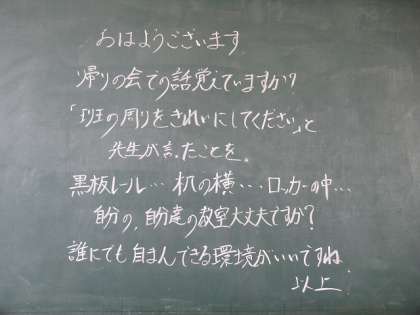 おはようございます
帰りの会での話覚えていますか?
「班の周りをきれいにしてください」と
先生が言ったことを。
黒板レール… 机の横… ロッカーの中…
自分の、自分達の教室大丈夫ですか?
誰にでも自まんできる環境がいいですね
以上